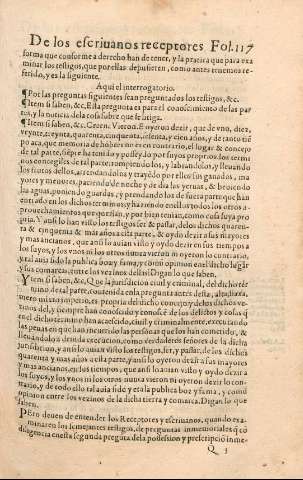 De los escriuanos receptores Fol.117
forma que conforme a derecho han de tener, y la pratica que para exa
minar los testigos, que por ellas depusieren, como antes tenemos re-
ferido, y es la siguiente.
Aqui el interrogatorio.
¶Por las preguntas siguientes sean preguntados los testigos, &c.
¶Item si saben, &c. Esta pregunta es para el conoscimiento de las par
tes, y la noticia de la cosa sobre que se litiga.
¶Item si saben, &c. Creen. Vieron. E oyeron dezir, que de vno, diez,
veynte, treynta, quarenta, cinquenta, sesenta, y cien años, y de tanto tiē
po aca, que memoria de hombres no es en contrario, el lugar & concejo
de tal parte, siēpre ha tenido y posseydo por suyos propios los termi
nos concegiles de tal parte, rompiendolos, y labrandolos, y lleuando
los frutos dellos, arrendandolos y trayēdo por ellos sus ganados, ma
yores y menores, paciendo de noche y de dia las yeruas, & beuiendo
las aguas, poniendo guardas, y prendando los de fuera parte que han
entrado en los dichos terminos, y haziendo en ellos todos los otros a-
prouechamientos que querian, y por bien tenian, como cosa suya pro
pria. Y ansi lo han visto los testigos ser & passar, de los dichos quaren-
ta & cinquenta & mas años a esta parte, & oydo dezir a sus mayores
y mas ancianos, que ansi lo auian visto y oydo dezir en sus tiempos a
los suyos, y los vnos ni los otros nunca vieron ni oyeron lo contrario,
y tal auia sido la publica boz y fama, y comun opinion en el dicho lugar
y sus comarcas, entre los vezinos dellas. Digan lo que saben.
Ytem si saben, &c. Que la jurisdicion ciuil y criminal, del dicho ter
mino de tal parte, contenida en la pregunta antes desta, alta, baxa,
mero mixto imperio, es propria del dicho concejo y de los dichos ve-
zinos del, y siempre han conoscido y conoscē de los delictos y cosas q̄
en el dicho termino han acaescido, ciuil y criminalmente, executando
las penas en que han incurrido las personas que los han cometido, &
lleuandolos a deuida execucion, como verdaderes señores de la dicha
jurisdicion, y ansi lo auian visto los testigos, ser, y passar, de los dichos
quarenta y mas años a esta parte, y ansi lo oyeron dezir a sus mayores
y mas ancianos, en sus tiempos, que ansi lo auian visto y oydo dezir a
los suyos, y los vnos ni los otros nunca vieron ni oyeron dezir lo con-
trario, y de todo ello tal auia sido y era la publica boz y fama, y comū
opinion entre los vezinos de la dicha tierra y comarca. Digan lo que
saben.
PEro deuen de entender los Receptores y escriuanos, quando exa-
minaren los semejantes testigos, de preguntas immemoriales q̄ cō
diligencia en esta segunda pregūta de la possession y prescripcio inme-
Q 5